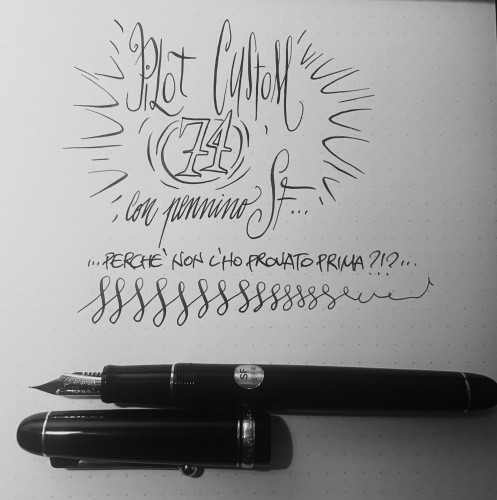 PiLot CUStoM
74
con pennino SF...
...PERCHE' NON L'HO PROVATO PRIMA?!?...
SF